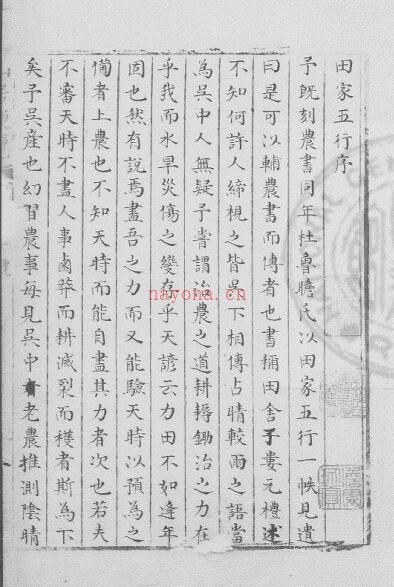 田家五行序
予既刻農書同年杜魯瞻氏以田家五行一帙見遺
曰是可以輔農書而傳者也書稱田舍子婁元禮述
不知何許人締視之皆吳下相傳占晴較雨之語當
為吳中人無疑予嘗謂治農之道耕耨鋤治之力在
乎我而水旱災傷之變存乎天諺云力田不如逢年
固也然有說焉盡吾之力而又能驗天時以預為之
備者上農也不知天時而能自盡其力者次也若夫
不審天時不盡人事鹵莽而耕滅裂而穫者斯為下
矣予吳產也幻習農事每見吳中老農推測陰晴
nayona.cn